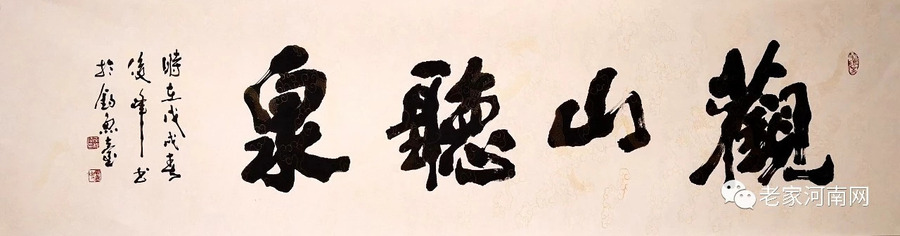 觀山聽泉
時在戊戌春
俊峰书
於釣魚臺
老家河南网